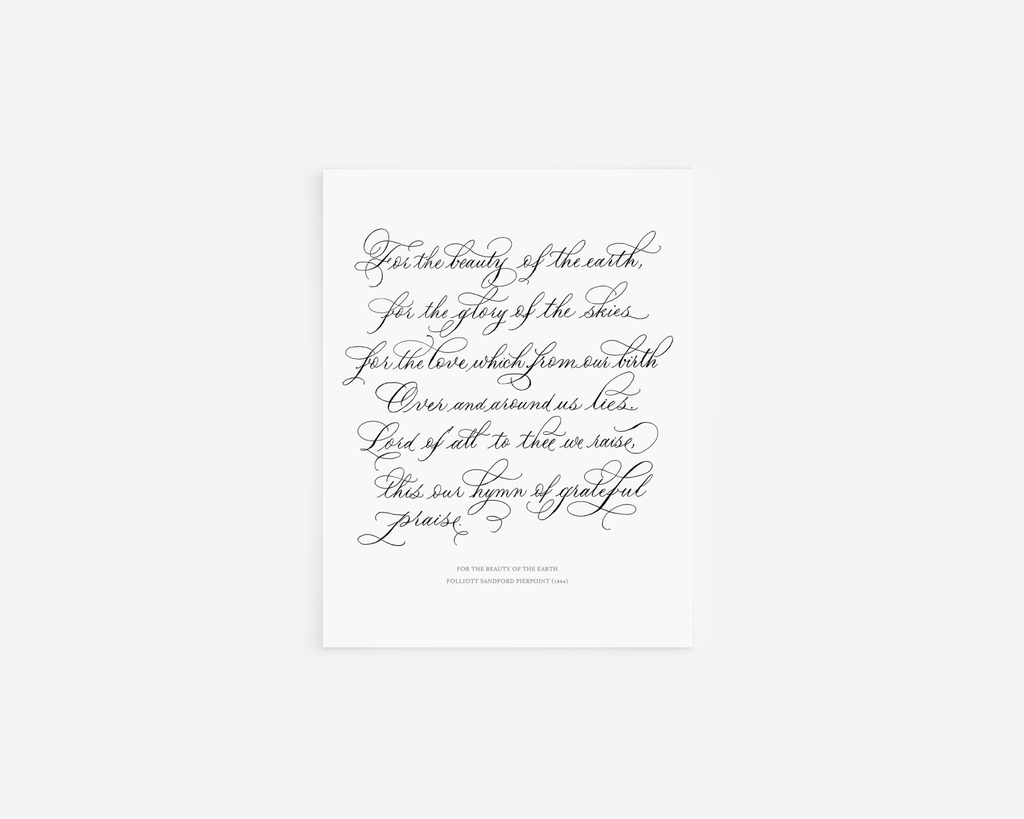 For the beauty of the earth,
for the glory of the skies
for the love which from our birth
Over and around us lies.
Lord of all to thee we raise,
this our hymn of grateful
praise.
FOR THE BEAUTY OF THE EARTH
FOLLIOTT SANDFORD PIERPOINT (1864)